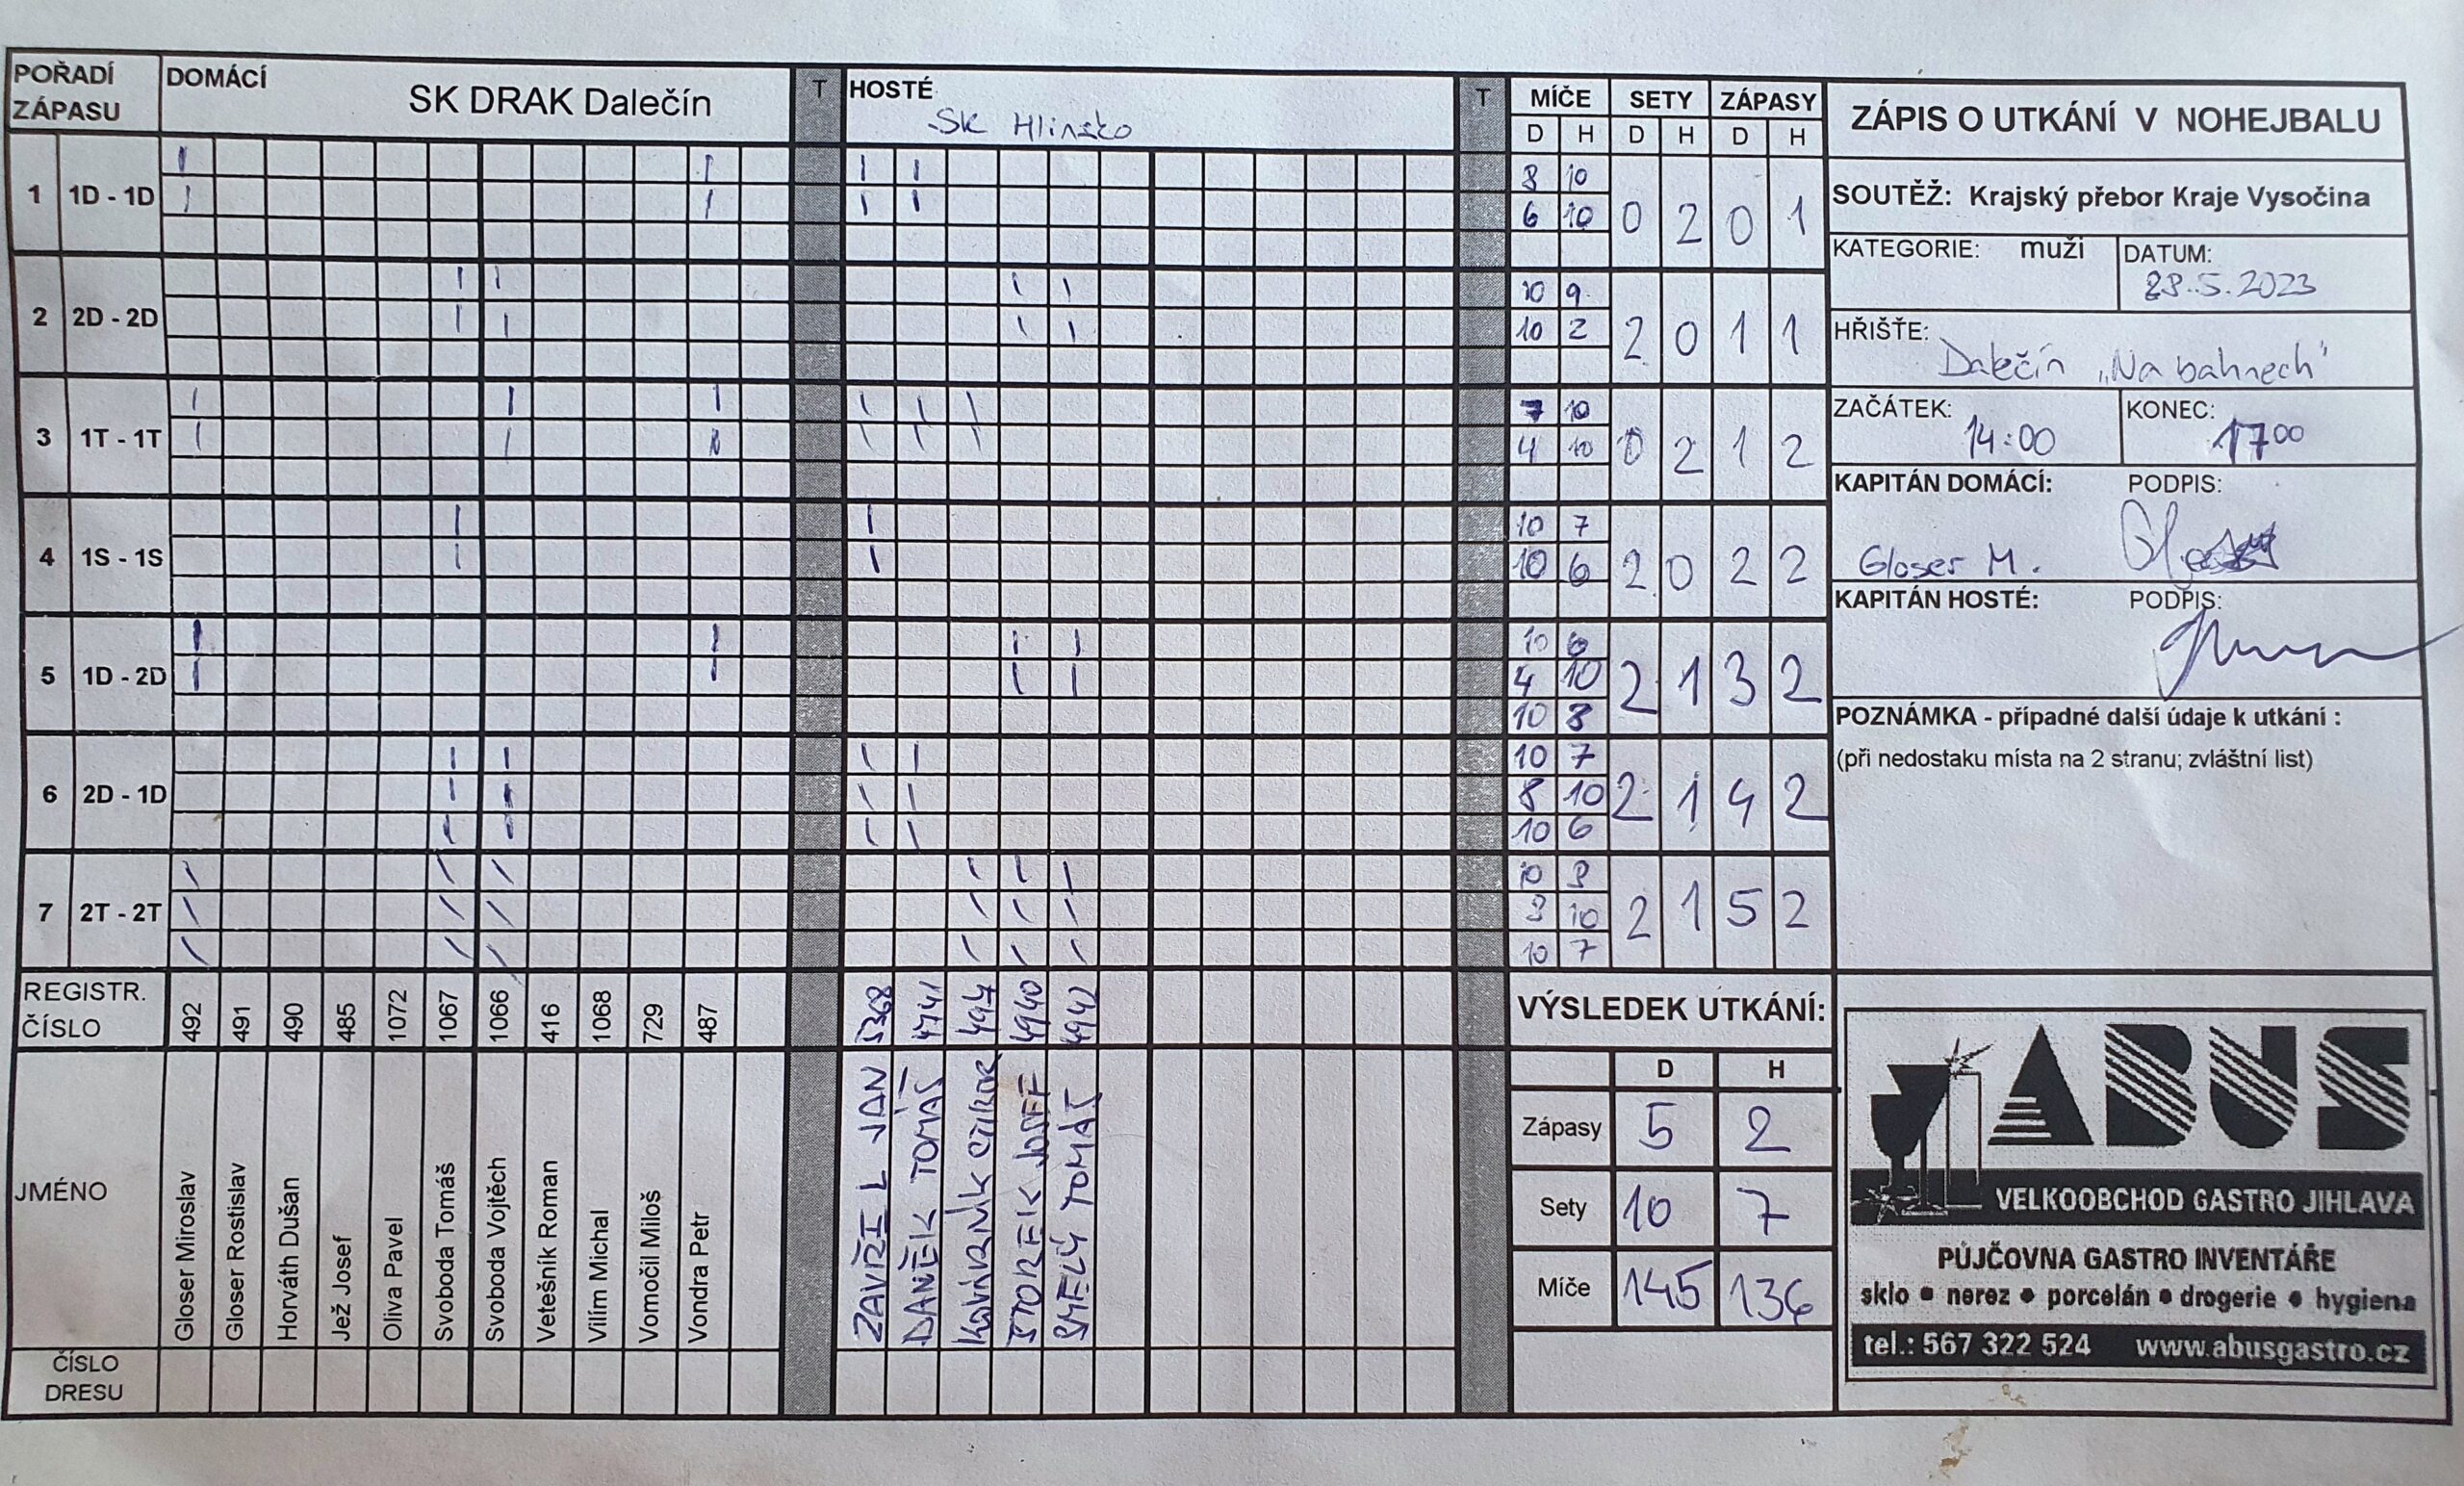 POŘADÍ ZÁPASU DOMÁCÍ SK DRAK Dalečín T HOSTÉ SK Hlinsko T MÍČE SETY ZÁPASY
D H D H D H
1 1D - 1D 8 10 0 2 0 1
6 10
2 2D - 2D 10 9 2 0 1 1
10 2
3 1T - 1T 7 10 0 2 1 2
4 10
4 1S - 1S 10 7 2 0 2 2
10 6
5 1D - 2D 10 6 2 1 3 2
4 10
10 8
6 2D - 1D 10 7 2 1 4 2
8 10
10 6
7 2T - 2T 10 8 2 1 5 2
8 10
10 7
REGISTR. ČÍSLO 492 491 490 485 1072 1067 1066 416 1068 729 487 5368 4741 4940 4942
JMÉNO
Gloser Miroslav
Gloser Rostislav
Horváth Dušan
Jež Josef
Oliva Pavel
Svoboda Tomáš
Svoboda Vojtěch
Vetešník Roman
Vilím Michal
Vomočil Miloš
Vondra Petr
ZAVŘEL JAN
DANĚK TOMÁŠ
JOSEF
SMELÝ TOMÁŠ
ČÍSLO DRESU
VÝSLEDEK UTKÁNÍ:
D H
Zápasy 5 2
Sety 10 7
Míče 145 136
ZÁPIS O UTKÁNÍ V NOHEJBALU
SOUTĚŽ: Krajský přebor Kraje Vysočina
KATEGORIE: muži DATUM:
28.5.2023
HŘIŠTĚ:
Dalečín „Na bahnech"
ZAČÁTEK: KONEC:
14:00 17 00
KAPITÁN DOMÁCÍ: PODPIS:
Gloser M.
KAPITÁN HOSTÉ: PODPIS:
POZNÁMKA - případné další údaje k utkání :
(při nedostaku místa na 2 stranu; zvláštní list)
ABUS
VELKOOBCHOD GASTRO JIHLAVA
PŮJČOVNA GASTRO INVENTÁŘE
sklo • nerez • porcelán • drogerie • hygiena
tel.: 567 322 524 www.abusgastro.cz